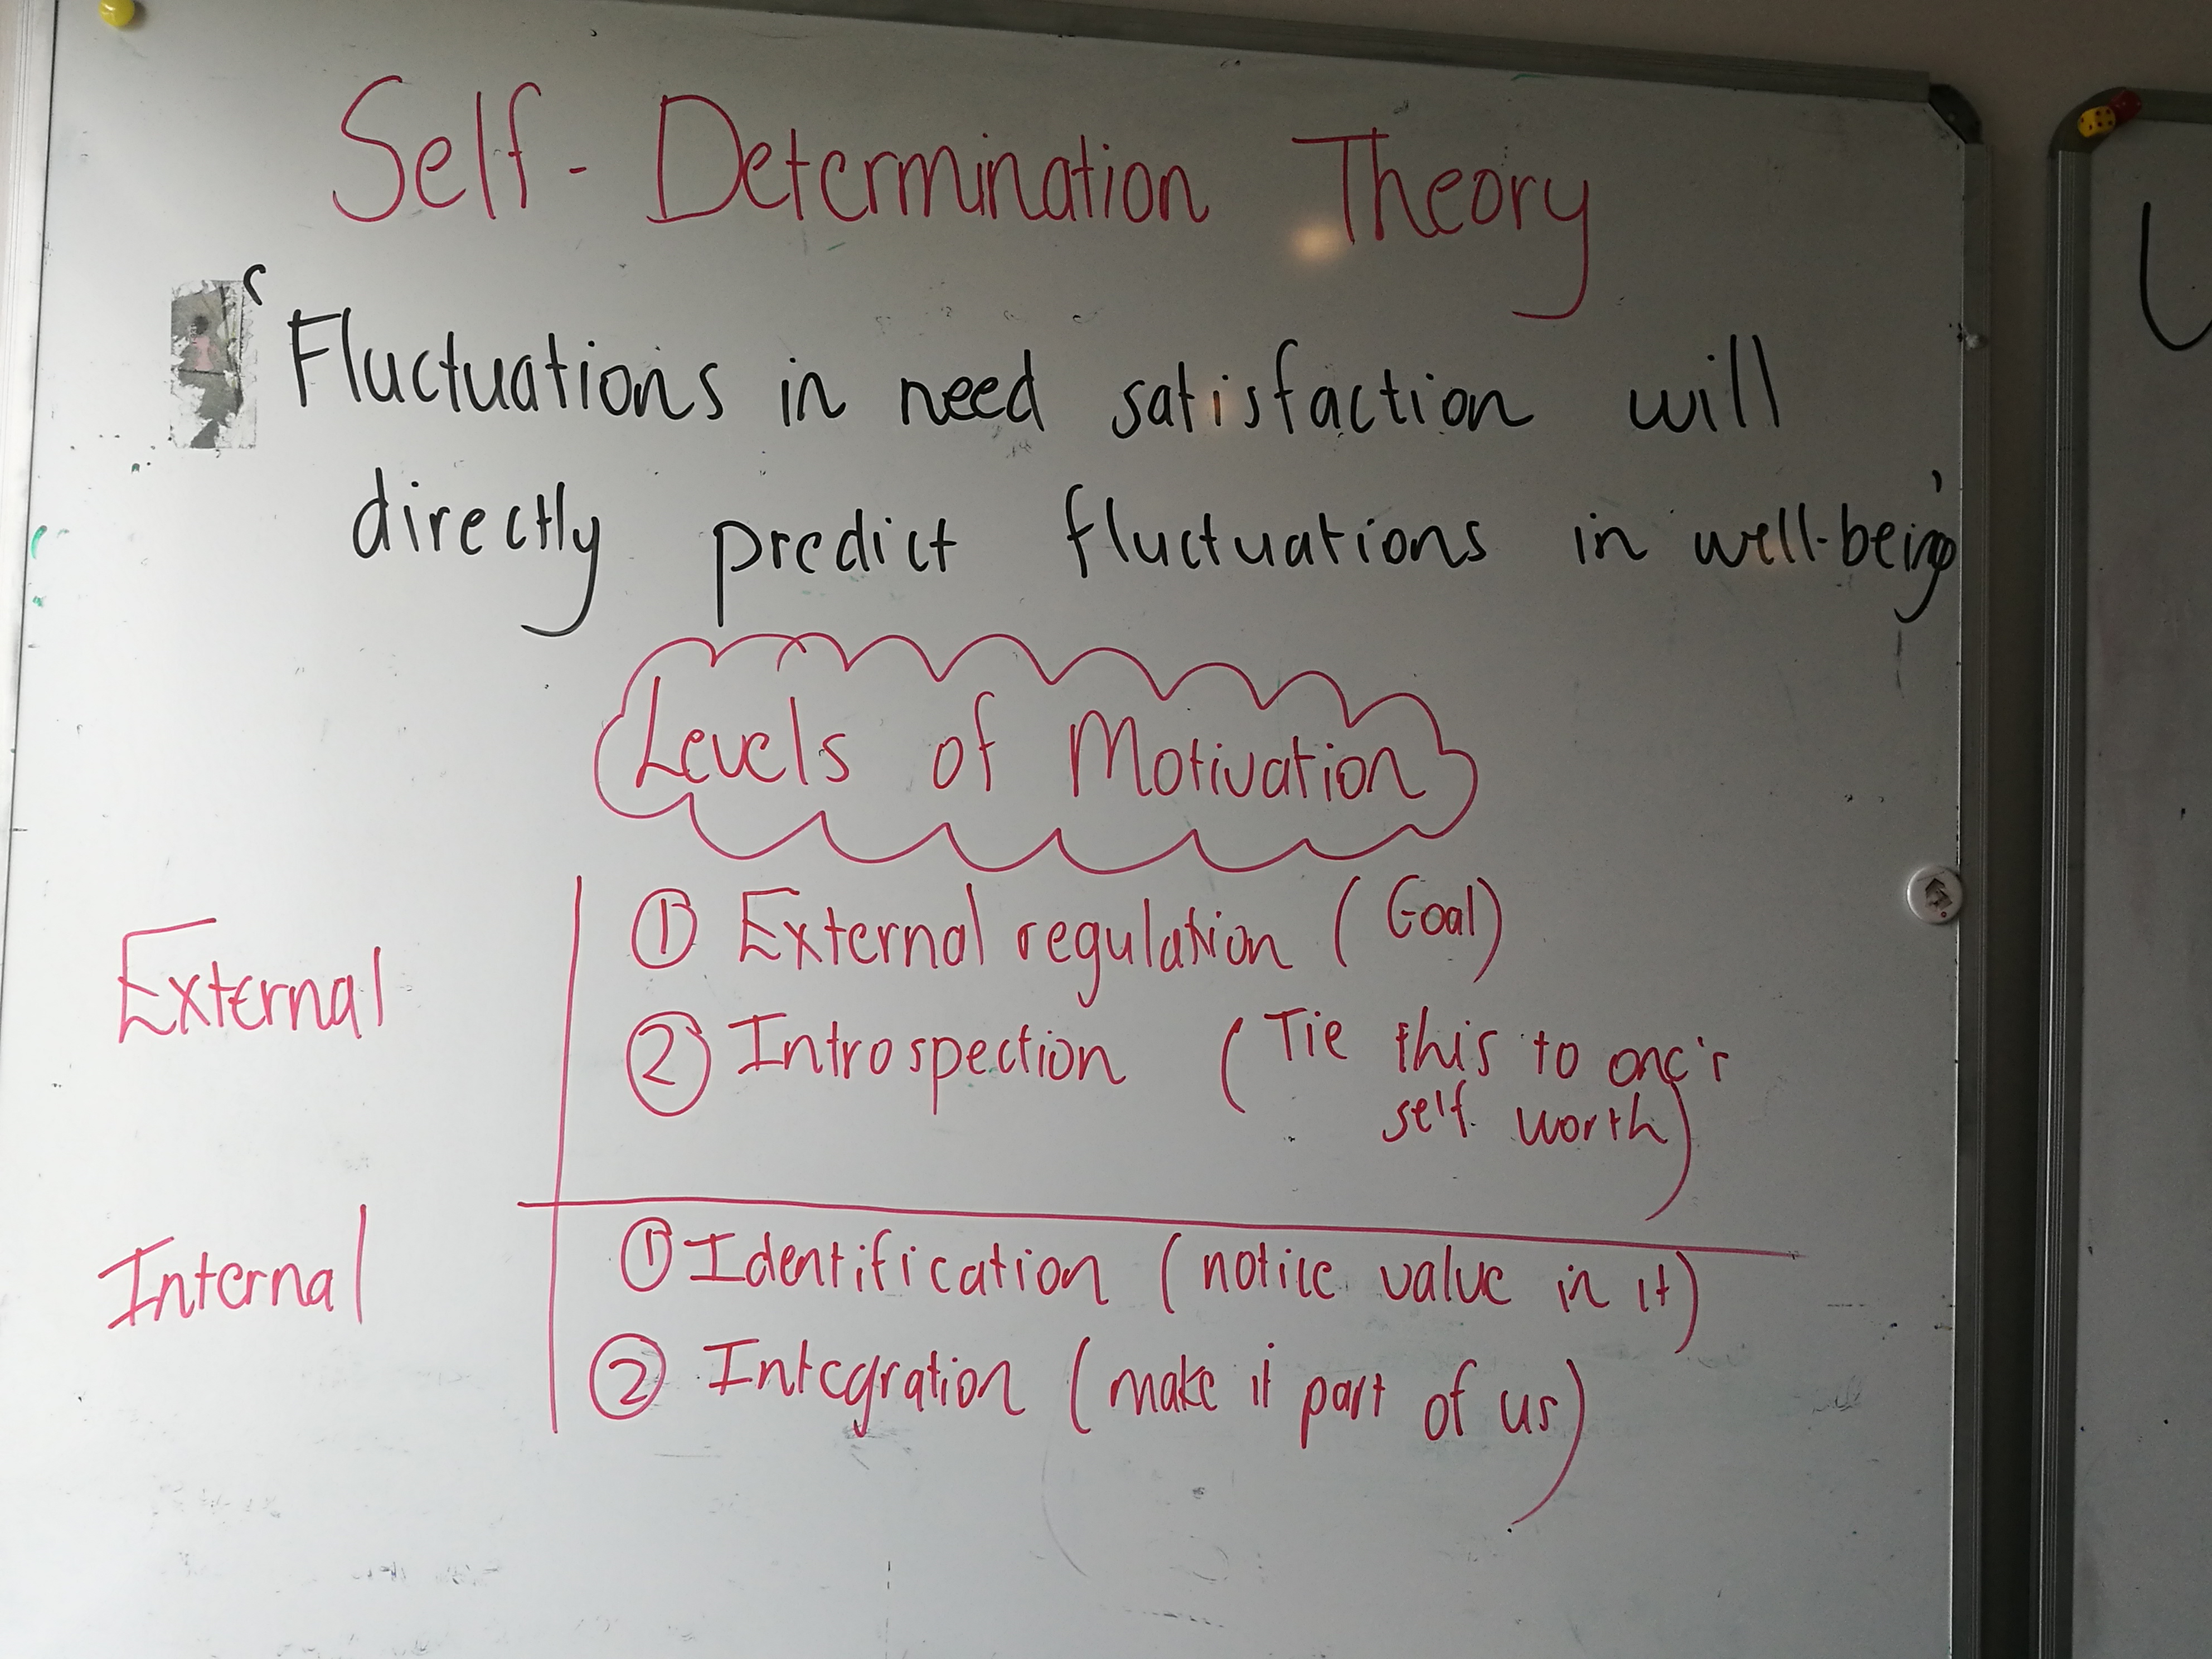 Self - Determination Theory
'Fluctuations in need satisfaction will
directly predict fluctuations in well-being'
Levels of Motivation
External
① External regulation (Goal)
② Introspection (Tie this to one's
self worth)
Internal
① Identification (notice value in it)
② Integration (make it part of us)